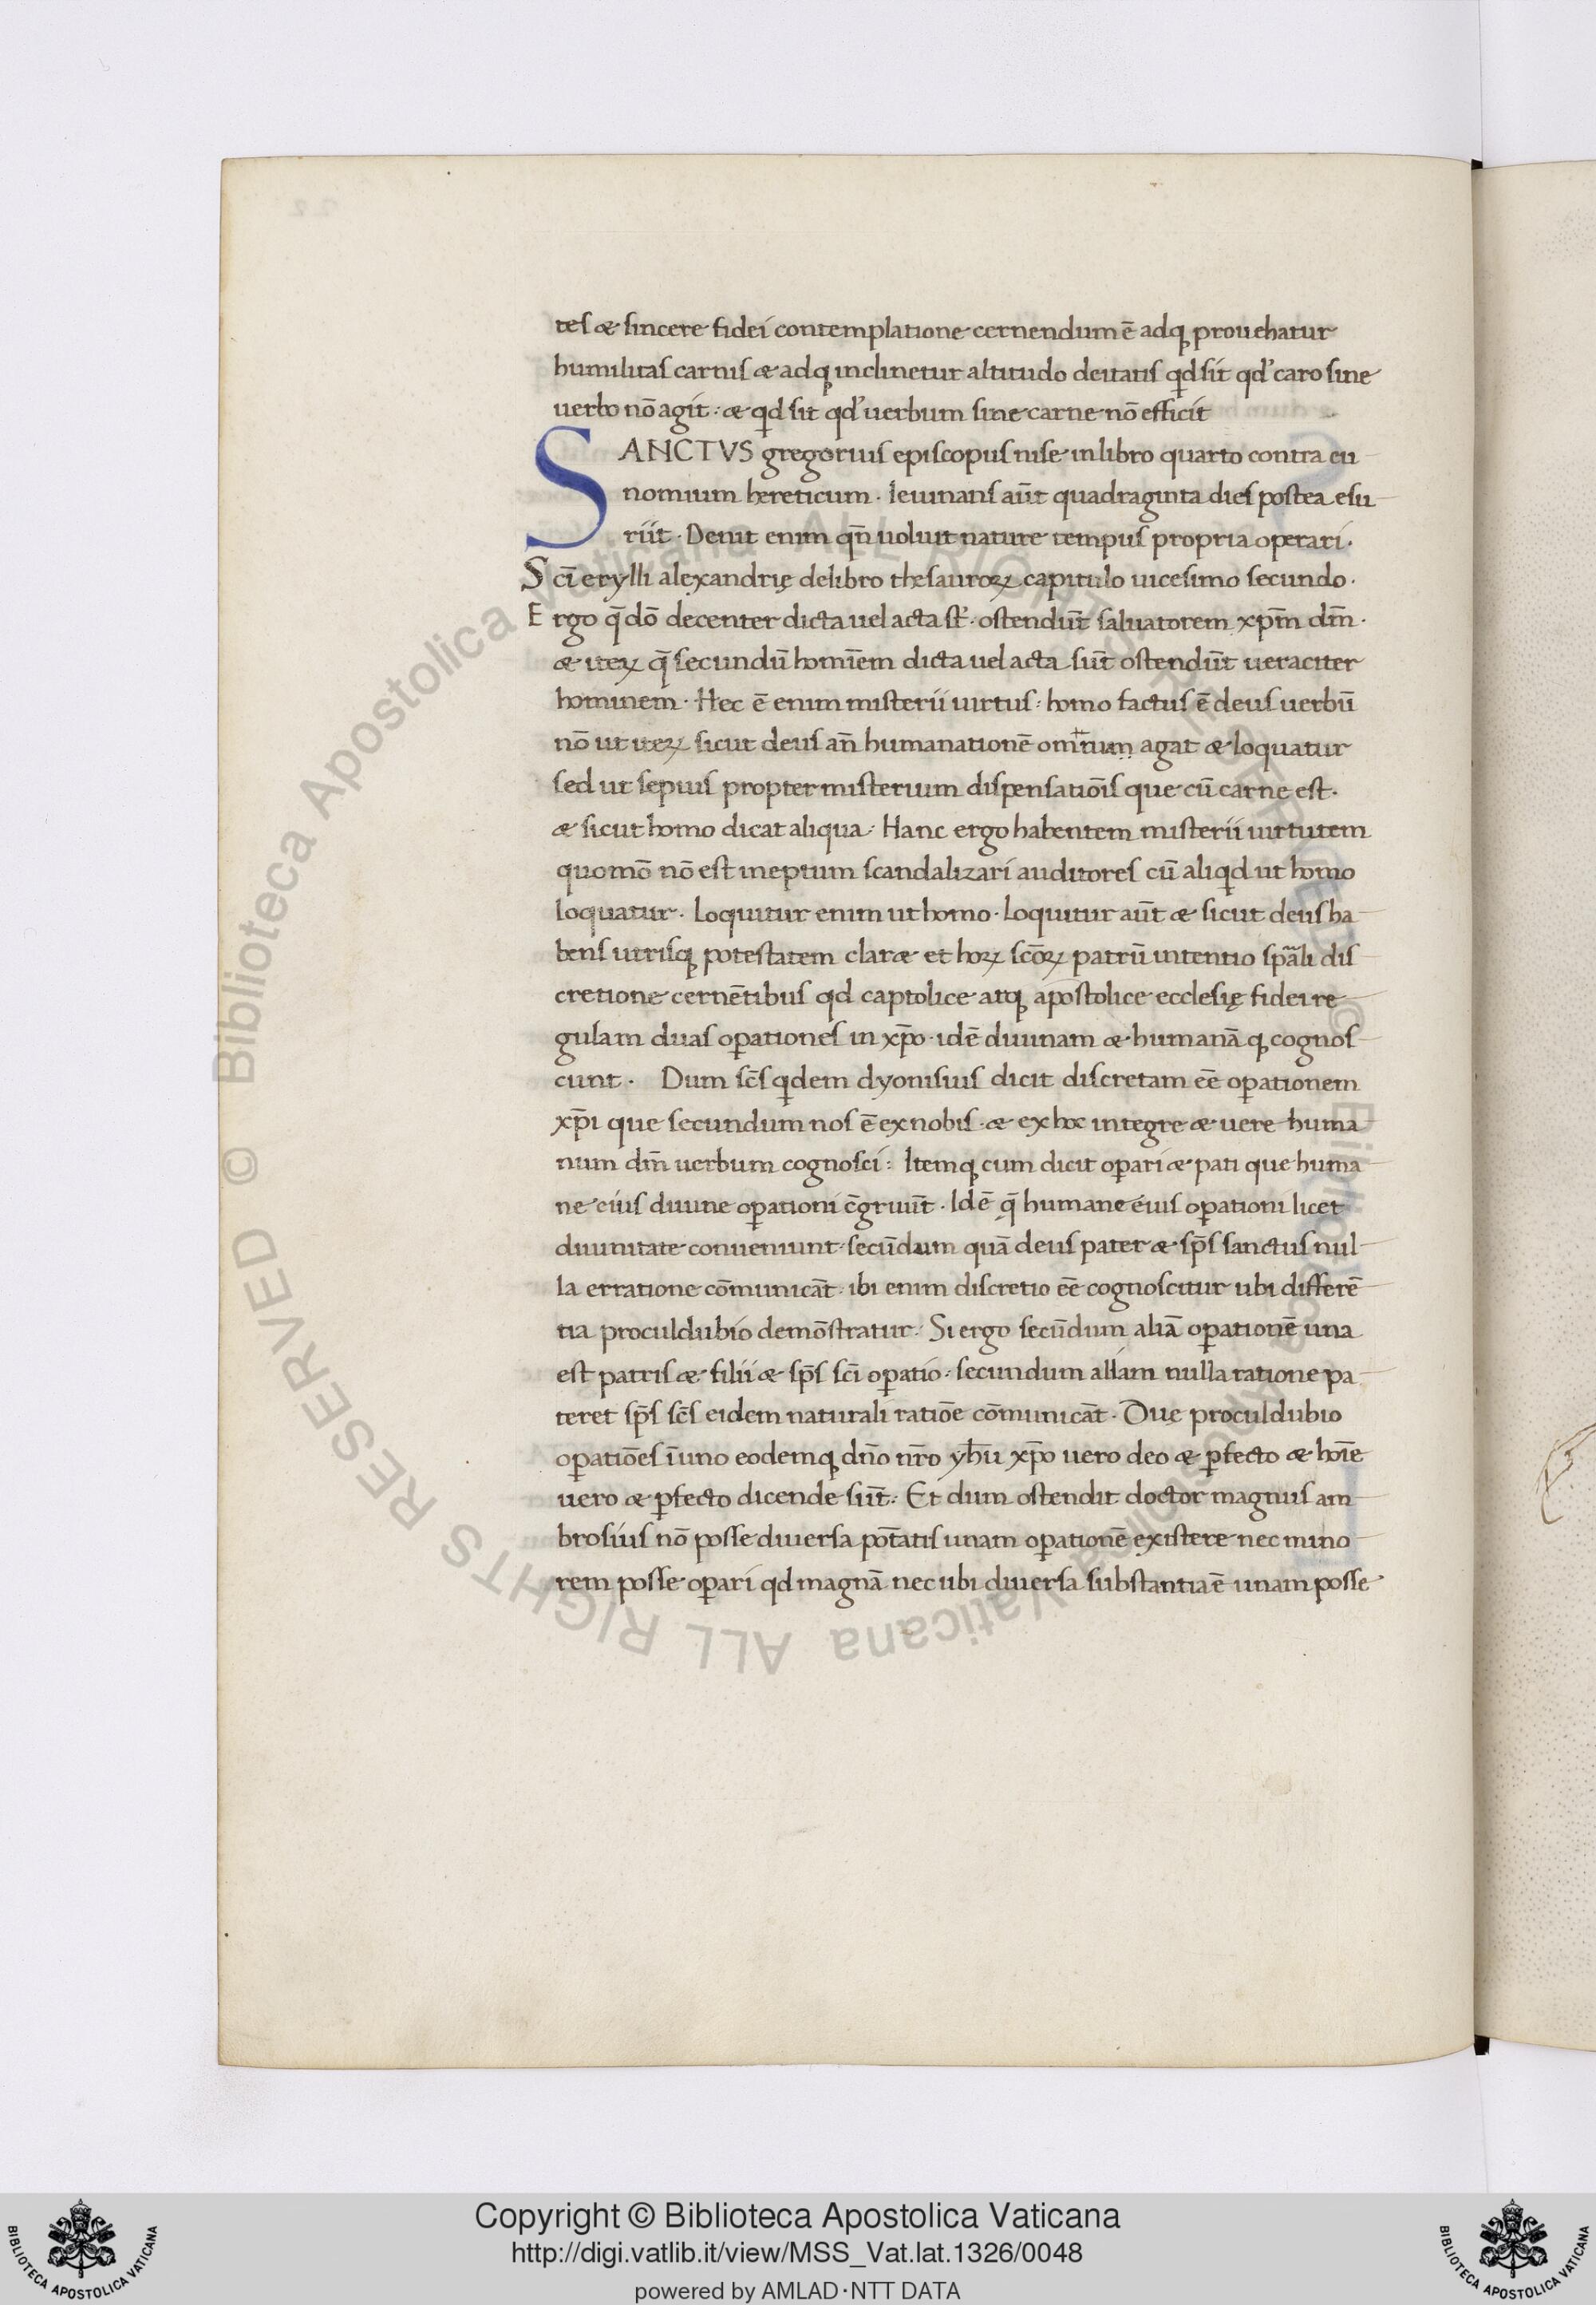 tes æ sincere fidei contemplatione cernendum ē adq; prouehatur
humilitas carnis æ adq; inclinetur altitudo deitatis qd sit qd' caro sine
uerbo nō agit : æ qd sit qd' uerbum sine carne nō efficit
SANCTVS gregorius episcopus nise in libro quarto contra eu
nomium hereticum · Ieiunans aūt quadraginta dies postea esu
riit · Denit enim qn̄ uoluit nature tempus propria operari ·
Scī erylli alexandrię de libro thesauroꝝ capitulo uicesimo secundo ·
Ergo q̄ dō decenter dicta uel acta st̄ · ostendūt saluatorem xp̄m dm̄ ·
æ iteꝝ q̄ secundū homīem dicta uel acta sūt ostendūt ueraciter
hominem · Hec ē enim misterii uirtus : homo factus ē deus uerbū
nō ut iteꝝ sicut deus an̄ humanationē omnium agat æ loquatur
sed ut sepius propter misterium dispensatiōis que cū carne est ·
æ sicut homo dicat aliqua : Hanc ergo habentem misterii uirtutem
quomō nō est ineptum scandalizari auditores cū aliqd ut homo
loquatur · Loquitur enim ut homo · loquitur aūt æ sicut deus ha
bens utrisq; potestatem claræ et hoꝝ scōꝝ patrū intentio sp̄ali dis
cretione cernētibus qd captolice atq; apostolice ecclesię fidei re
gulam duas oꝑationes in xp̄o · idē diuinam æ humanā q; cognos
cunt · Dum sc̄s qdem dyonisius dicit discretam eē oꝑationem
xp̄i que secundum nos ē ex nobis · æ ex hoc integre æ uere huma
num dm̄ uerbum cognosci : Itemq; cum dicit oꝑari æ pati que huma
ne eius diuine oꝑationi c̄gruūt · Idē q̄ humane eius oꝑationi licet
diuinitate conueniunt · secūdum quā deus pater æ sp̄s sanctus nul
la erratione cōmunicāt · ibi enim discretio eē cognoscitur ubi differē
tia proculdubio demōstratur : Si ergo secūdum aliā oꝑationē una
est patris æ filii æ sp̄s scī oꝑatio · secundum aliam nulla ratione pa
teret sp̄s sc̄s eidem naturali ratiōe cōmunicāt · Duę proculdubio
oꝑatiōes ī uno eodemq; dn̄o nr̄o yh̄u xp̄o uero deo æ ꝑfecto æ hoīe
uero æ ꝑfecto dicende sūt : Et dum ostendit doctor magnus am
brosius nō posse diuersa pot̄atis unam oꝑationē existere nec mino
rem posse oꝑari qd magnā nec ubi diuersa substantia ē unam posse
© Biblioteca Apostolica Vaticana ALL RIGHTS RESERVED
© Biblioteca Apostolica Vaticana ALL RIGHTS RESERVED
Copyright © Biblioteca Apostolica Vaticana
http://digi.vatlib.it/view/MSS_Vat.lat.1326/0048
powered by AMLAD·NTT DATA
BIBLIOTECA APOSTOLICA VATICANA
BIBLIOTECA APOSTOLICA VATICANA